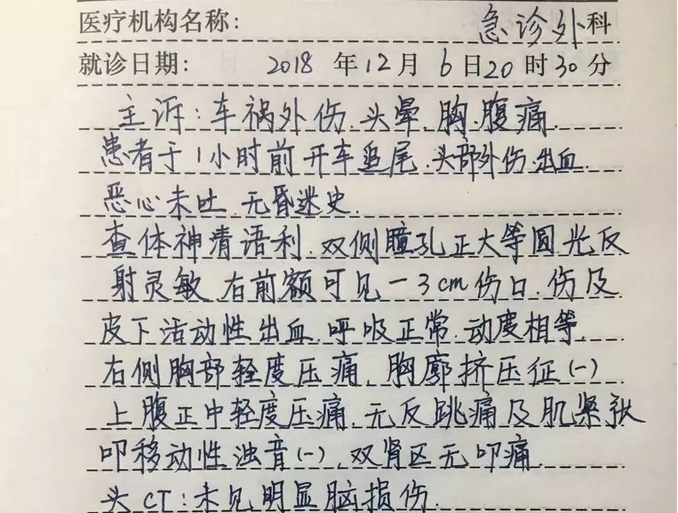 医疗机构名称: 急诊外科
就诊日期: 2018 年 12 月 6 日 20 时 30 分
主诉: 车祸外伤.头晕.胸.腹痛.
患者于1小时前开车追尾.头部外伤.出血
恶心未吐.无昏迷史.
查体神清语利.双侧瞳孔正大等圆光反
射灵敏.右前额可见一3cm伤口.伤及
皮下活动性出血.呼吸正常.动度相等.
右侧胸部轻度压痛.胸廓挤压征(-)
上腹正中轻度压痛.无反跳痛及肌紧张
叩移动性浊音(-).双肾区无叩痛.
头CT:未见明显脑损伤.